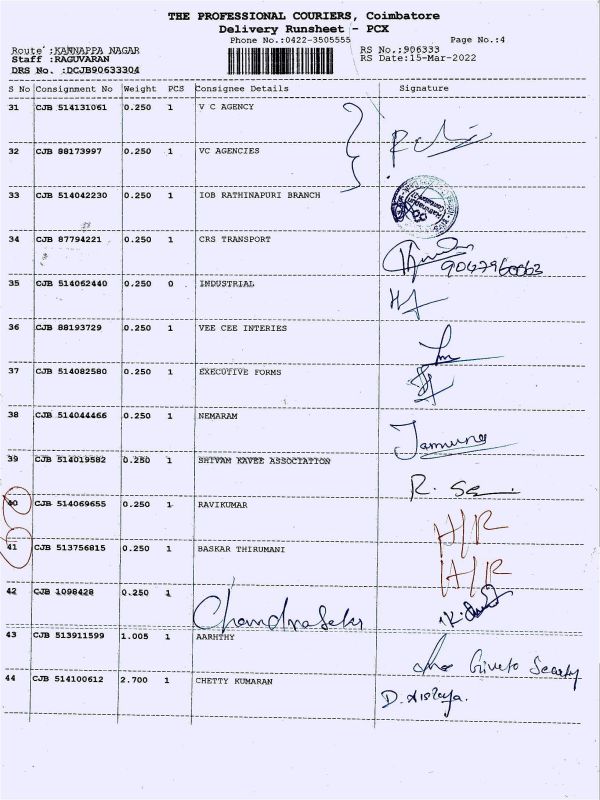 THE PROFESSIONAL COURIERS, Coimbatore
Delivery Runsheet - PCX
Phone No.:0422-3505555 Page No.:4
Route :KANNAPPA NAGAR RS No.:906333
Staff :RAGUVARAN RS Date:15-Mar-2022
DRS No. :DCJB90633304
S No Consignment No Weight PCS Consignee Details Signature
31 CJB 514131061 0.250 1 V C AGENCY
32 CJB 88173997 0.250 1 VC AGENCIES
33 CJB 514042230 0.250 1 IOB RATHINAPURI BRANCH
34 CJB 87794221 0.250 1 CRS TRANSPORT
9047960063
35 CJB 514062440 0.250 0 INDUSTRIAL
36 CJB 88193729 0.250 1 VEE CEE INTERIES
37 CJB 514082580 0.250 1 EXECUTIVE FORMS
38 CJB 514044466 0.250 1 NEMARAM
Jamuna
39 CJB 514019582 0.250 1 SHIVAM KAVEE ASSOCIATION
40 CJB 514069655 0.250 1 RAVIKUMAR
H/R
41 CJB 513756815 0.250 1 BASKAR THIRUMANI
H/R
42 CJB 1098428 0.250 1
43 CJB 513911599 1.005 1 AARHTHY
44 CJB 514100612 2.700 1 CHETTY KUMARAN